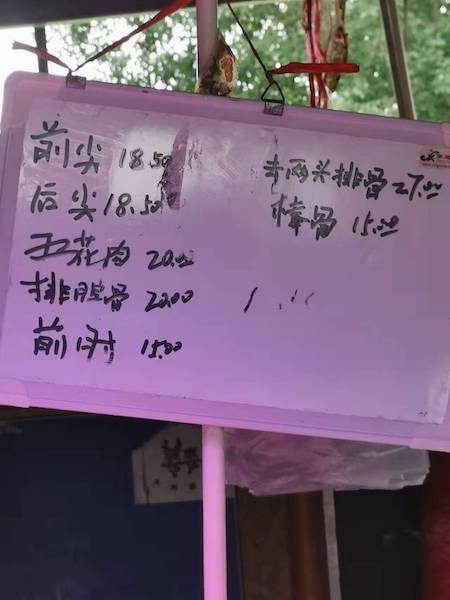 前尖 18.50
后尖 18.50
五花肉 20.00
排腔骨 20.00
前肘 15.00
去两头排骨 27.00
棒骨 15.00